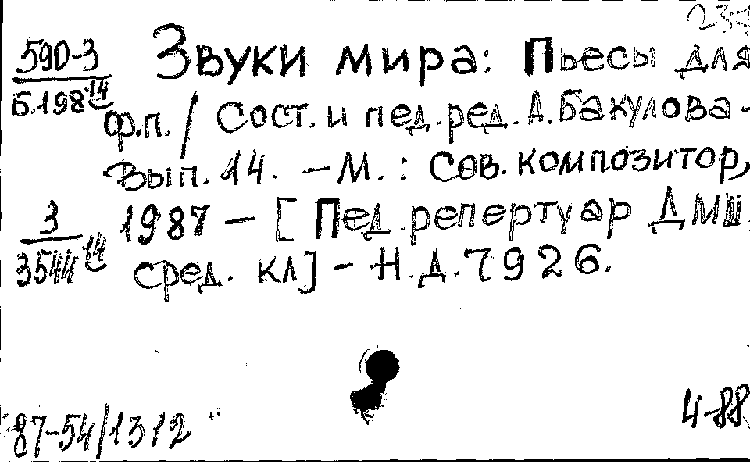 234
590-3 Звуки мира: Пьесы для
Б.198 14 ф.п. / Сост. и пед. ред. А. Бакулова -
Вып. 14. - М. : Сов. композитор,
3 1987 - [Пед. репертуар ДМШ
3544 14 сред. кл] - Н.Д. 7926.
87-54/1312
4-88